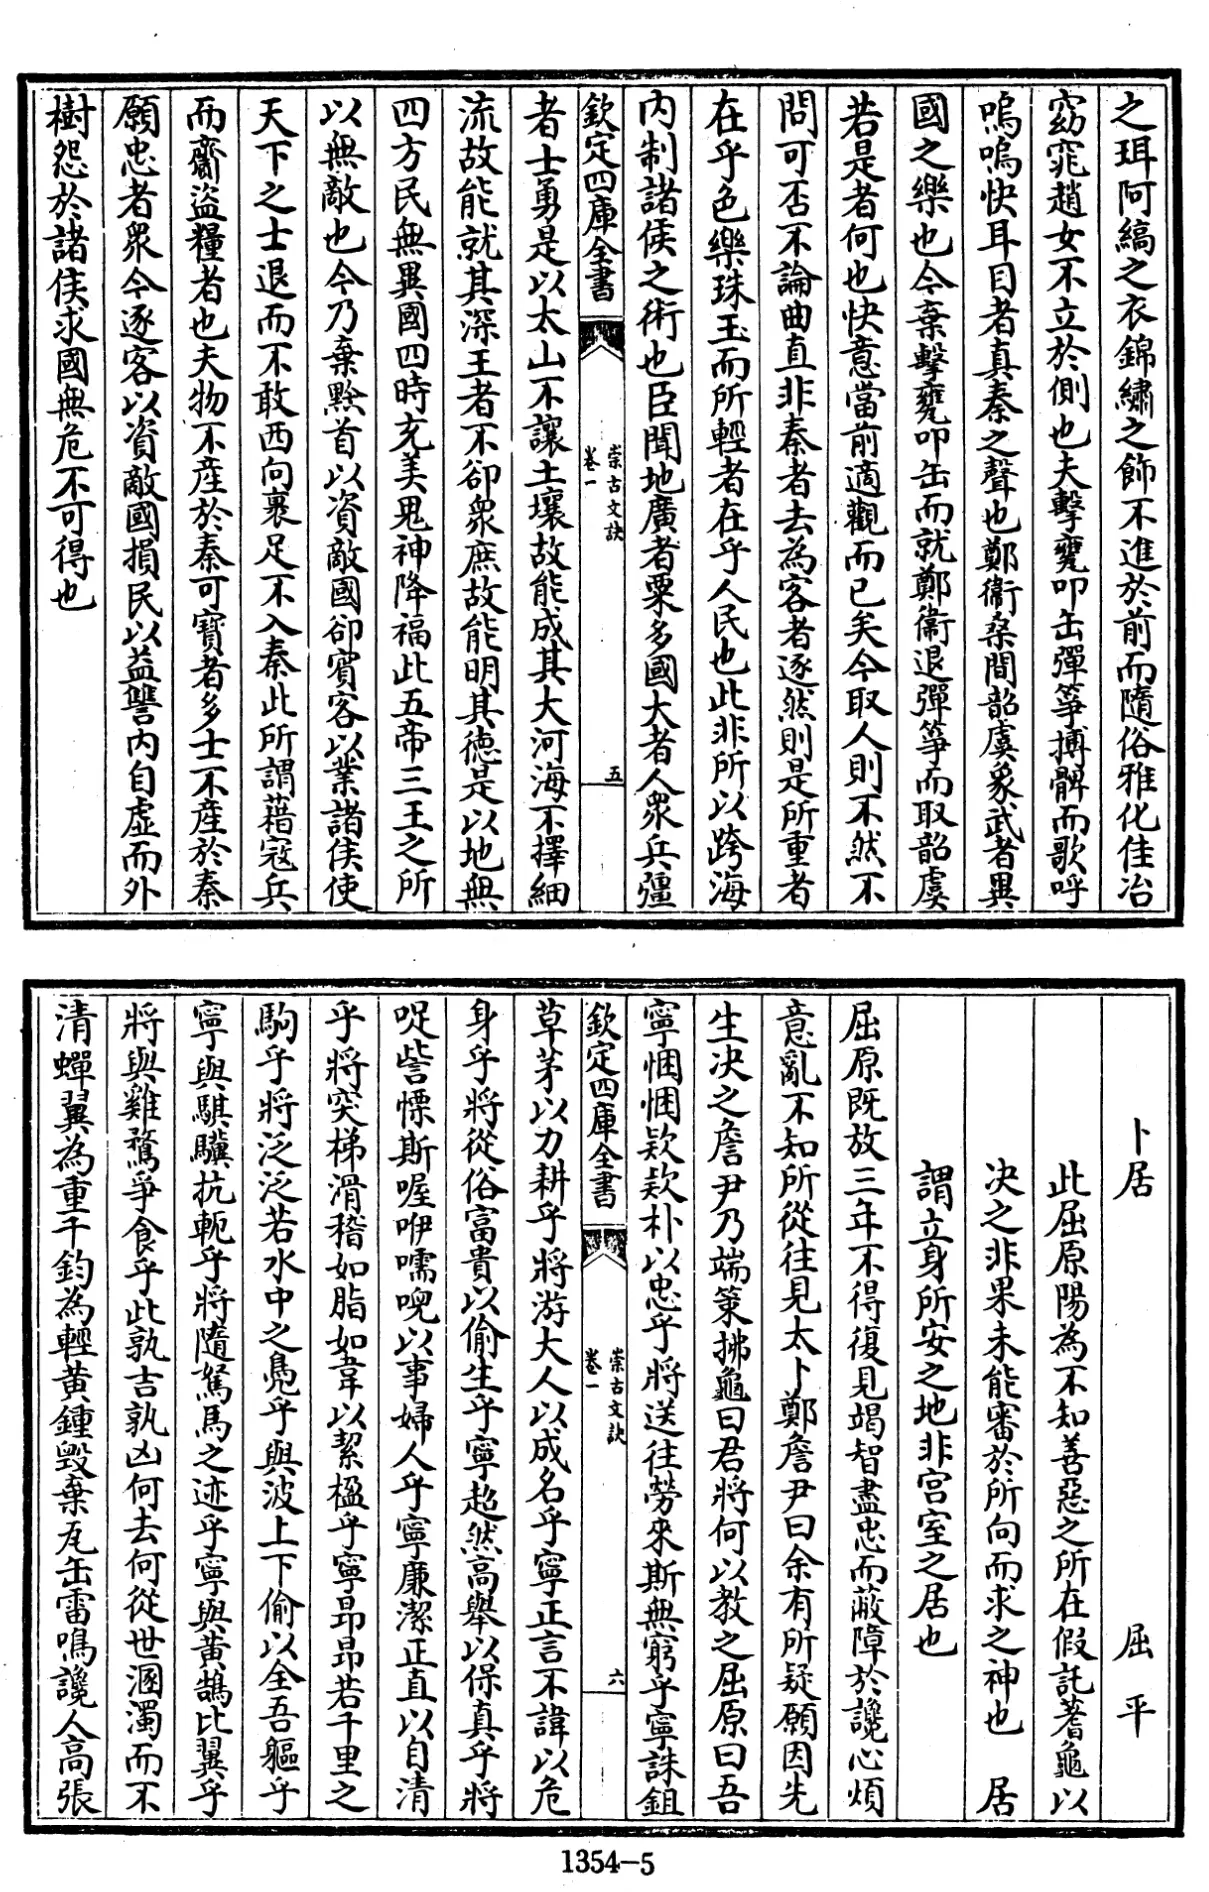 之珥阿縞之衣錦繡之飾不進於前而隨俗雅化佳冶
窈窕趙女不立於側也夫擊甕叩缶彈筝搏髀而歌呼
嗚嗚快耳目者真秦之聲也鄭衞桑間韶虞象武者異
國之樂也今棄擊甕叩缶而就鄭衞退彈筝而取韶虞
若是者何也快意當前適觀而已矣今取人則不然不
問可否不論曲直非秦者去為客者逐然則是所重者
在乎色樂珠玉而所輕者在乎人民也此非所以跨海
内制諸侯之術也臣聞地廣者粟多國大者人衆兵彊
欽定四庫全書
崇古文訣
卷一
五
者士勇是以太山不讓土壤故能成其大河海不擇細
流故能就其深王者不卻衆庶故能明其德是以地無
四方民無異國四時充美鬼神降福此五帝三王之所
以無敵也今乃棄黔首以資敵國卻賓客以業諸侯使
天下之士退而不敢西向裹足不入秦此所謂藉寇兵
而齎盜糧者也夫物不産於秦可寶者多士不産於秦
願忠者衆今逐客以資敵國損民以益讐内自虛而外
樹怨於諸侯求國無危不可得也
卜居 屈平
此屈原陽為不知善惡之所在假託蓍龜以
决之非果未能審於所向而求之神也 居
謂立身所安之地非宫室之居也
屈原既放三年不得復見竭智盡忠而蔽障於讒心煩
意亂不知所從往見太卜鄭詹尹曰余有所疑願因先
生决之詹尹乃端策拂龜曰君將何以教之屈原曰吾
寧悃悃欵欵朴以忠乎將送往勞來斯無窮乎寧誅鉏
欽定四庫全書
崇古文訣
卷一
六
草茅以力耕乎將游大人以成名乎寧正言不諱以危
身乎將從俗富貴以偷生乎寧超然高舉以保真乎將
哫訾慄斯喔咿嚅唲以事婦人乎寧廉潔正直以自清
乎將突梯滑稽如脂如韋以絜楹乎寧昻昻若千里之
駒乎將泛泛若水中之鳬乎與波上下偷以全吾軀乎
寧與騏驥抗軛乎將隨駑馬之迹乎寧與黄鵠比翼乎
將與雞鶩爭食乎此孰吉孰凶何去何從世溷濁而不
清蟬翼為重千鈞為輕黄鍾毁棄瓦缶雷鳴讒人高張
1354-5